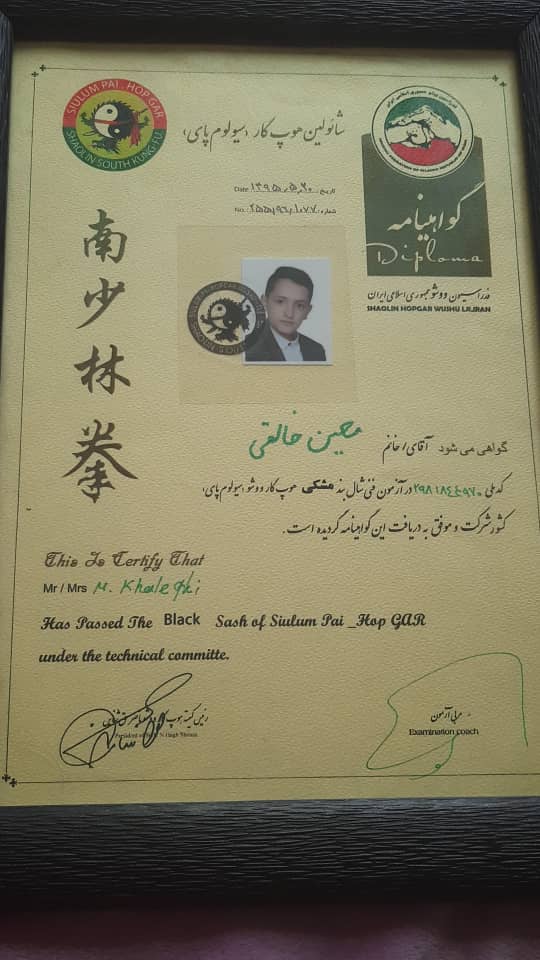 SIULUM PAI . HOP GAR
SHAOLIN SOUTH KUNG FU
شائولین هوپ کار (سیولوم پای)
تاریخ: ۱۳۹۵٫۵٫۲۰
Date
شماره:
No:
گواهینامه
Diploma
فدراسیون ووشو جمهوری اسلامی ایران
SHAOLIN HOPGAR WUSHU I.R.IRAN
南少林拳
گواهی می شود آقای/خانم معین خالقی
کدملی در آزمون فنی شال بند مشکی هوپ کار ووشو (سیولوم پای)
کشور شرکت و موفق به دریافت این گواهینامه گردیده است.
This Is Certify That
Mr / Mrs M. Khaleghi
Has Passed The Black Sash of Siulum Pai _Hop GAR
under the technical committe.
مربی آزمون
Examination coach